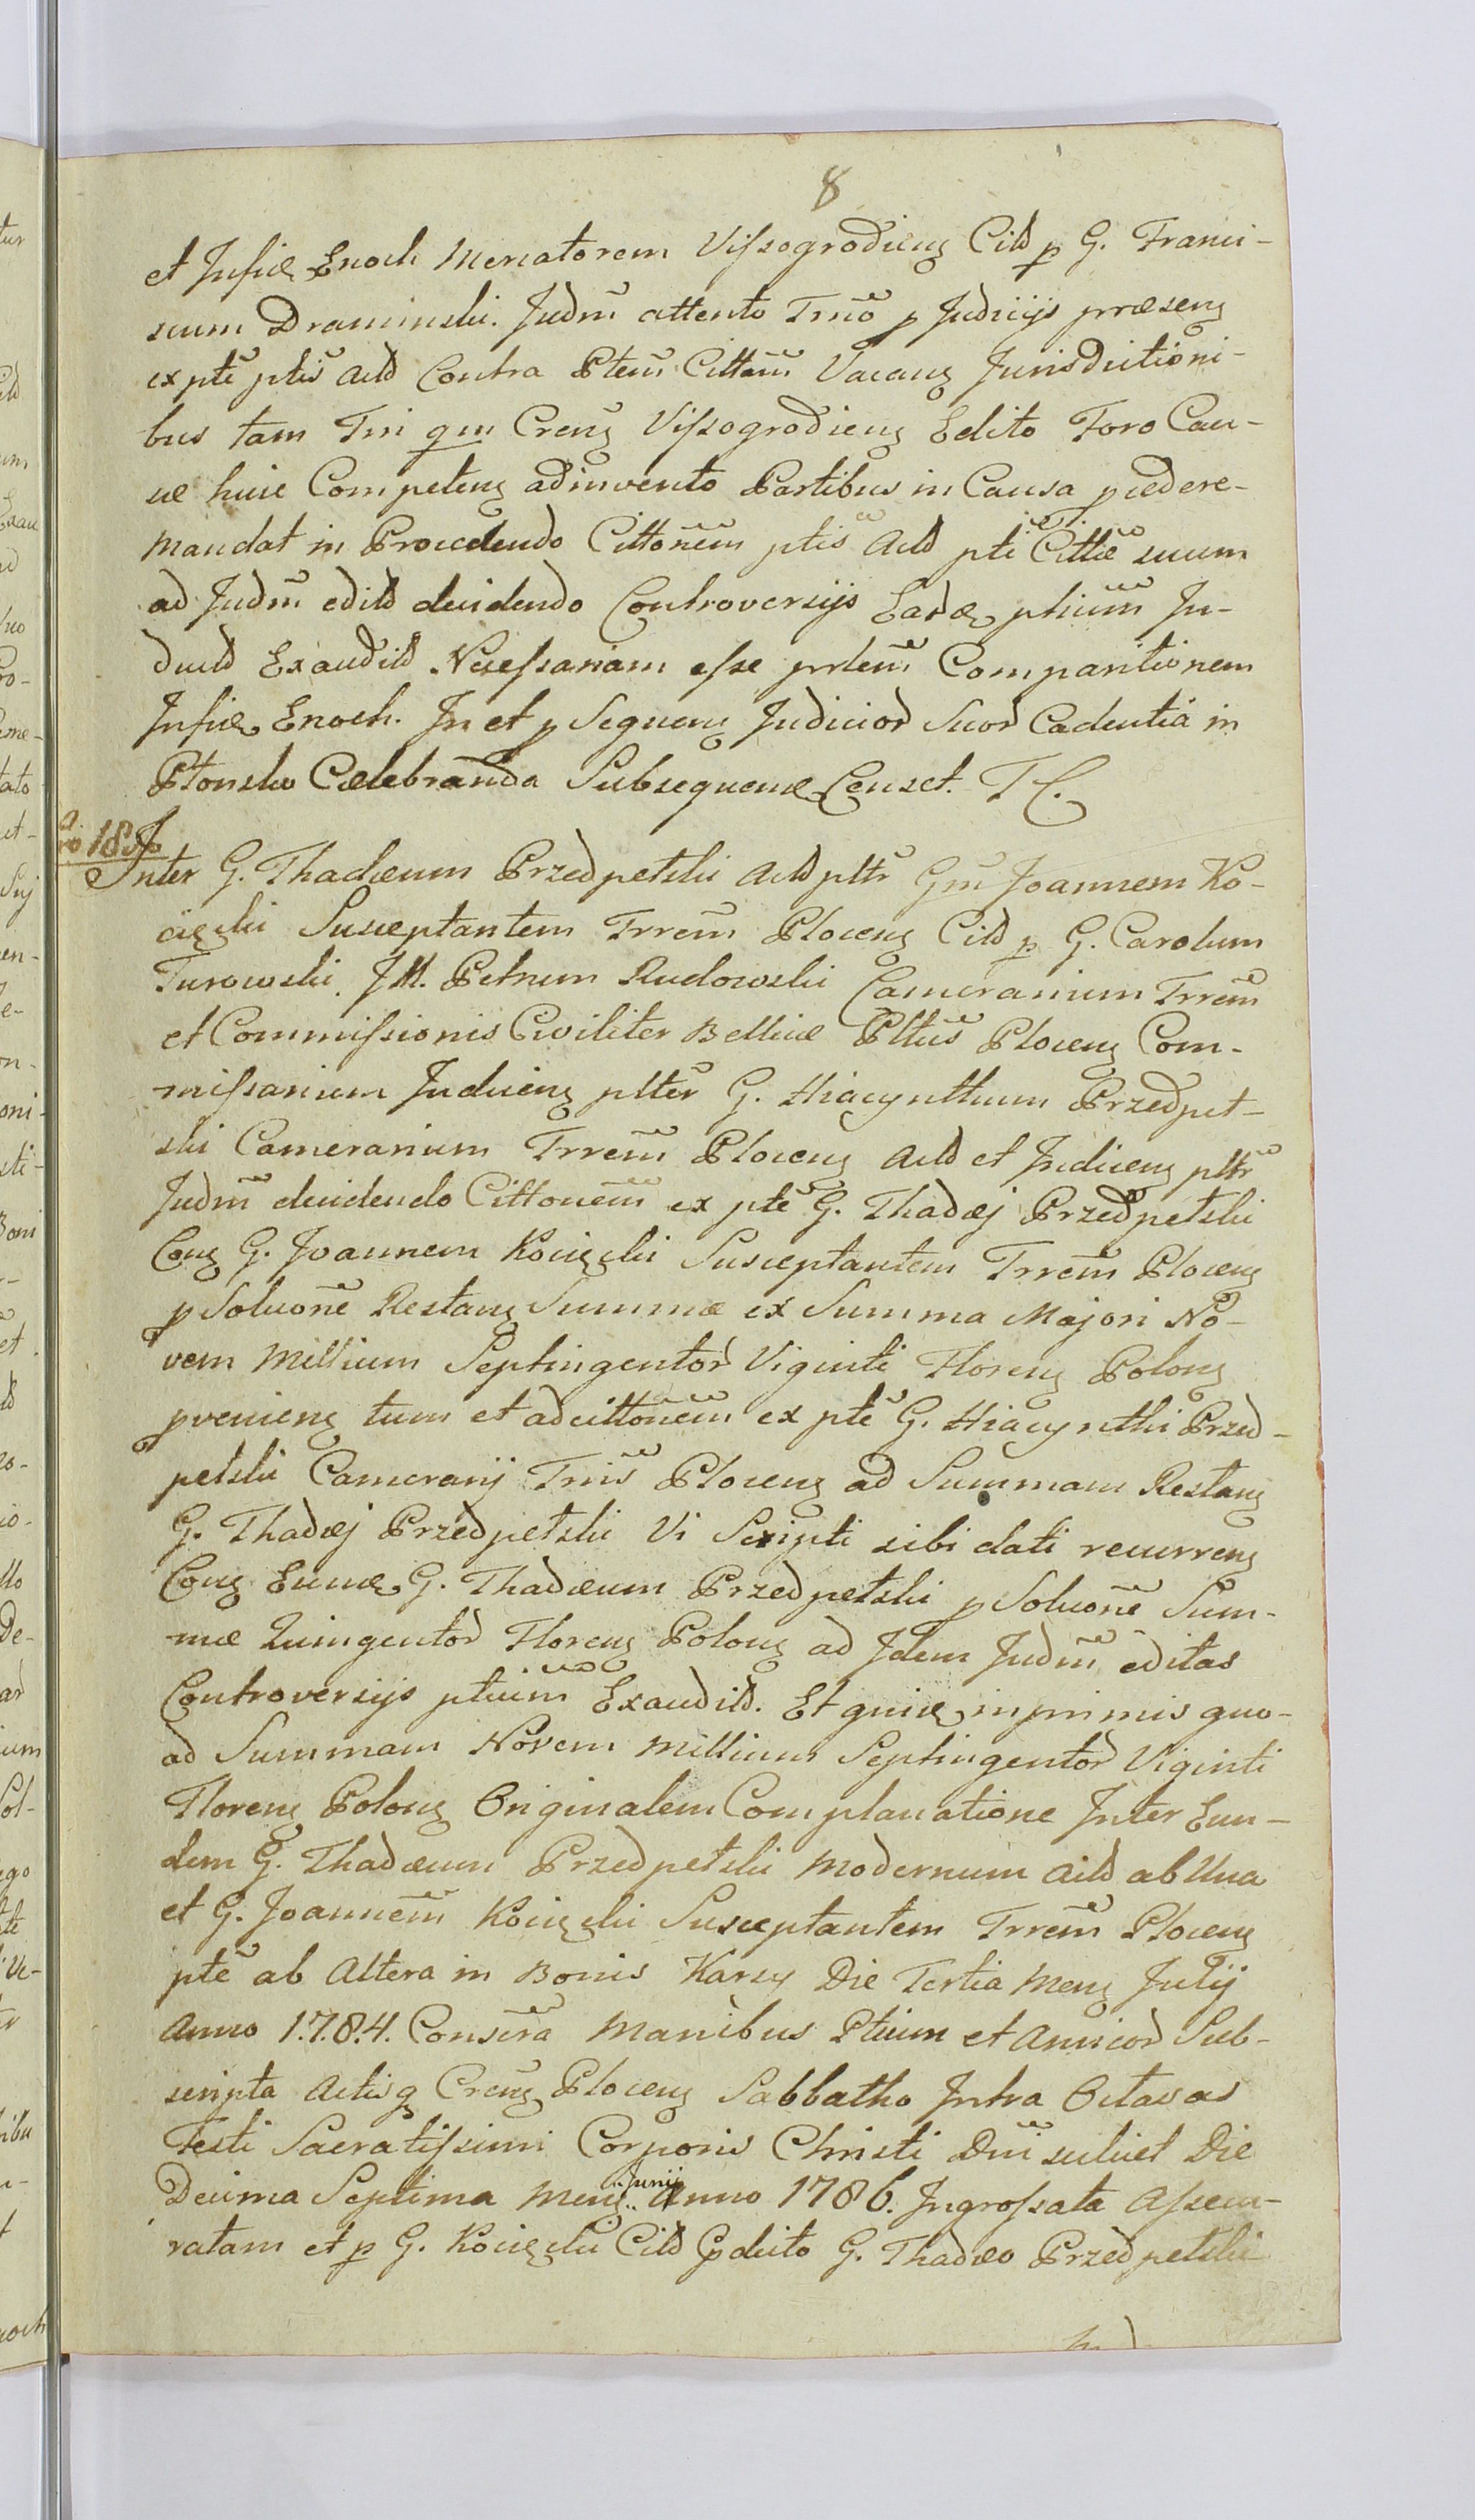 8
et Infid. Enoch Mercatorem Vissogrodieng Citd p G. Franci-
scum Draminski. Judm̃ attento Trnõ p Judicijs præseng
ex ptẽ ptĩs Actd Contra Ptem̃ Cittam̃ Vacang Jurisdictioni-
bus tam Tri qm Creng̃ Vissogrodieng Edito Foro Cau-
sæ huic Competeng adinvento Partibus in Causa pcedere-
mandat in Procedendo Cittonem̃ ptĩs Actd ptĩ Cittæ̃ suum
ad Judm̃ editd decidendo Controversijs Eard. ptium̃ In-
ducld Exauditd Necessariam esse prlem̃ Comparitionem
Infid. Enoch. In et p Sequeng Judiciod Suod Cadentia in
Płonsko Cælebranda Subsequem. Censet. TC.
a
ro 18
Inter G. Thadæum Przedpełski Actd pltr̃ Gm̃ Joannem Ko-
cięcki Susceptantem Trrem̃ Ploceng Citd p G. Carolum
Turowski. J M. Petrum Rudowski Camerarium Trrem̃
et Commissionis Civiliter Bellicæ Pltũs Ploceng Com-
missarium Induceng pltẽr G. Hiacynthum Przedpeł-
ski Camerarium Trrem̃ Ploceng Actd et Induceng pltr̃
Judm̃ decidendo Cittonem̃ ex ptẽ G. Thadæj Przedpełski
Cong G. Joannem Kocięcki Susceptantem Trrem̃ Ploceng
p Soluonẽ Restang Summæ ex Summa Majori No-
vem Millium Septingentod Viginti Floreng Polong
pvenieng tum et adcittonem̃ ex ptẽ G. Hiacynthi Przed-
pełski Camerarij Trrĩs Ploceng ad Summam Restang
G. Thadæj Przedpełski Vi Scripti sibi dati recurreng
Cong Eumd. G. Thadæum Przedpełski p Soluonẽ Sum-
mæ Quingentod Floreng Polong ad Idem Judm̃ editas
Controversijs ptium̃ Exauditd. Et quid. inprimis quo-
ad Summam Novem Millium Septingentod Viginti
Floreng Polong Originalem Complanatione Inter Eun-
dem G. Thadæum Przedpełski Modernum Actd ab Una
et G. Joannem̃ Kocięcki Susceptantem Trrem̃ Ploceng
ptẽ ab Altera in Bonis Karsy Die Tertia Meng Julij
Anno 1.7.8.4. Consc̃ra Manibus Ptium et Amicod Sub-
scripta Actisq Creng̃ Ploceng Sabbatho Intra Octavas
Festi Sacratissimi Corporis Christi Dñi scilicet Die
Decima Septima Meng Junij Anno 1786. Ingrossata Assecu-
ratam et p G. Kocięcki Citd Pdicto G. Thadæo Przedpełski